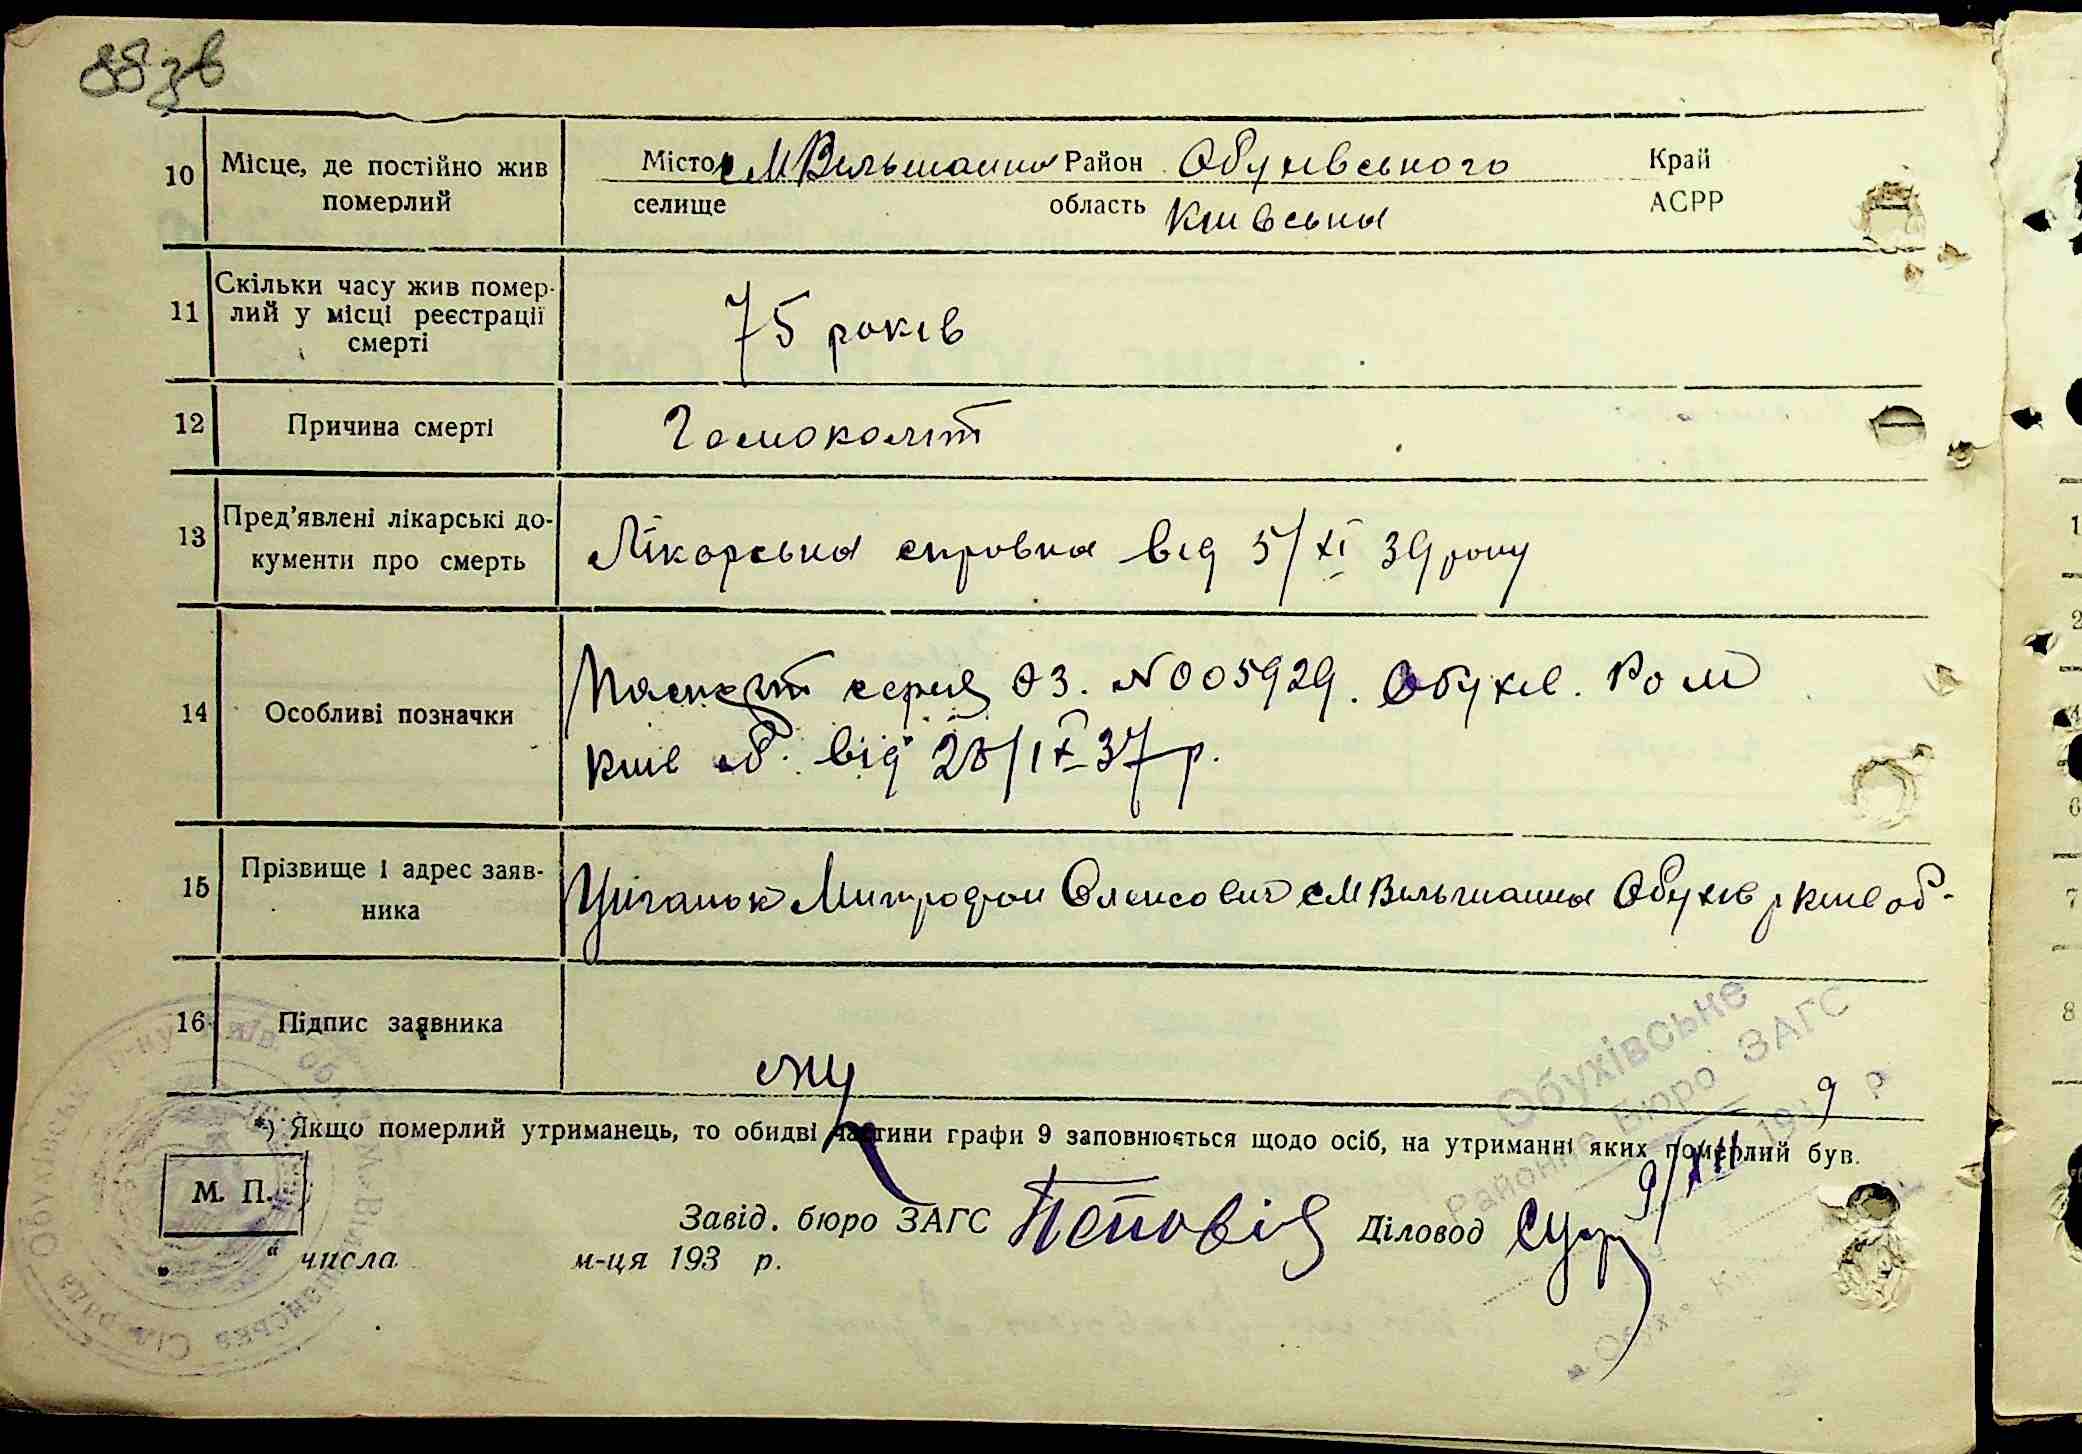 88зв
10 Місце, де постійно жив померлий
Місто с М Вільшанка Район Обухівського Край
селище область Київська АСРР
11 Скільки часу жив помер-
лий у місці реєстрації
смерті
75 років
12 Причина смерті
Гемоколіт
13 Пред'явлені лікарські до-
кументи про смерть
Лікарська справка від 5/XI 39 року
14 Особливі позначки
Паспорт серия ОЗ. №005929. Обухів. Ро М
Київ об. від 28/IX 37 р.
15 Прізвище і адрес заяв-
ника
Циганок Митрофан Олексович с М Вільшанка Обухів р Київ об-
16 Підпис заявника
*) Якщо померлий утриманець, то обидві частини графи 9 заповнюється щодо осіб, на утриманні яких померлий був.
М. П.
Завід. бюро ЗАГС Діловод
„ “ числа м-ця 193 р.
Обухівське
Районне Бюро ЗАГС
9/XII 1939 р